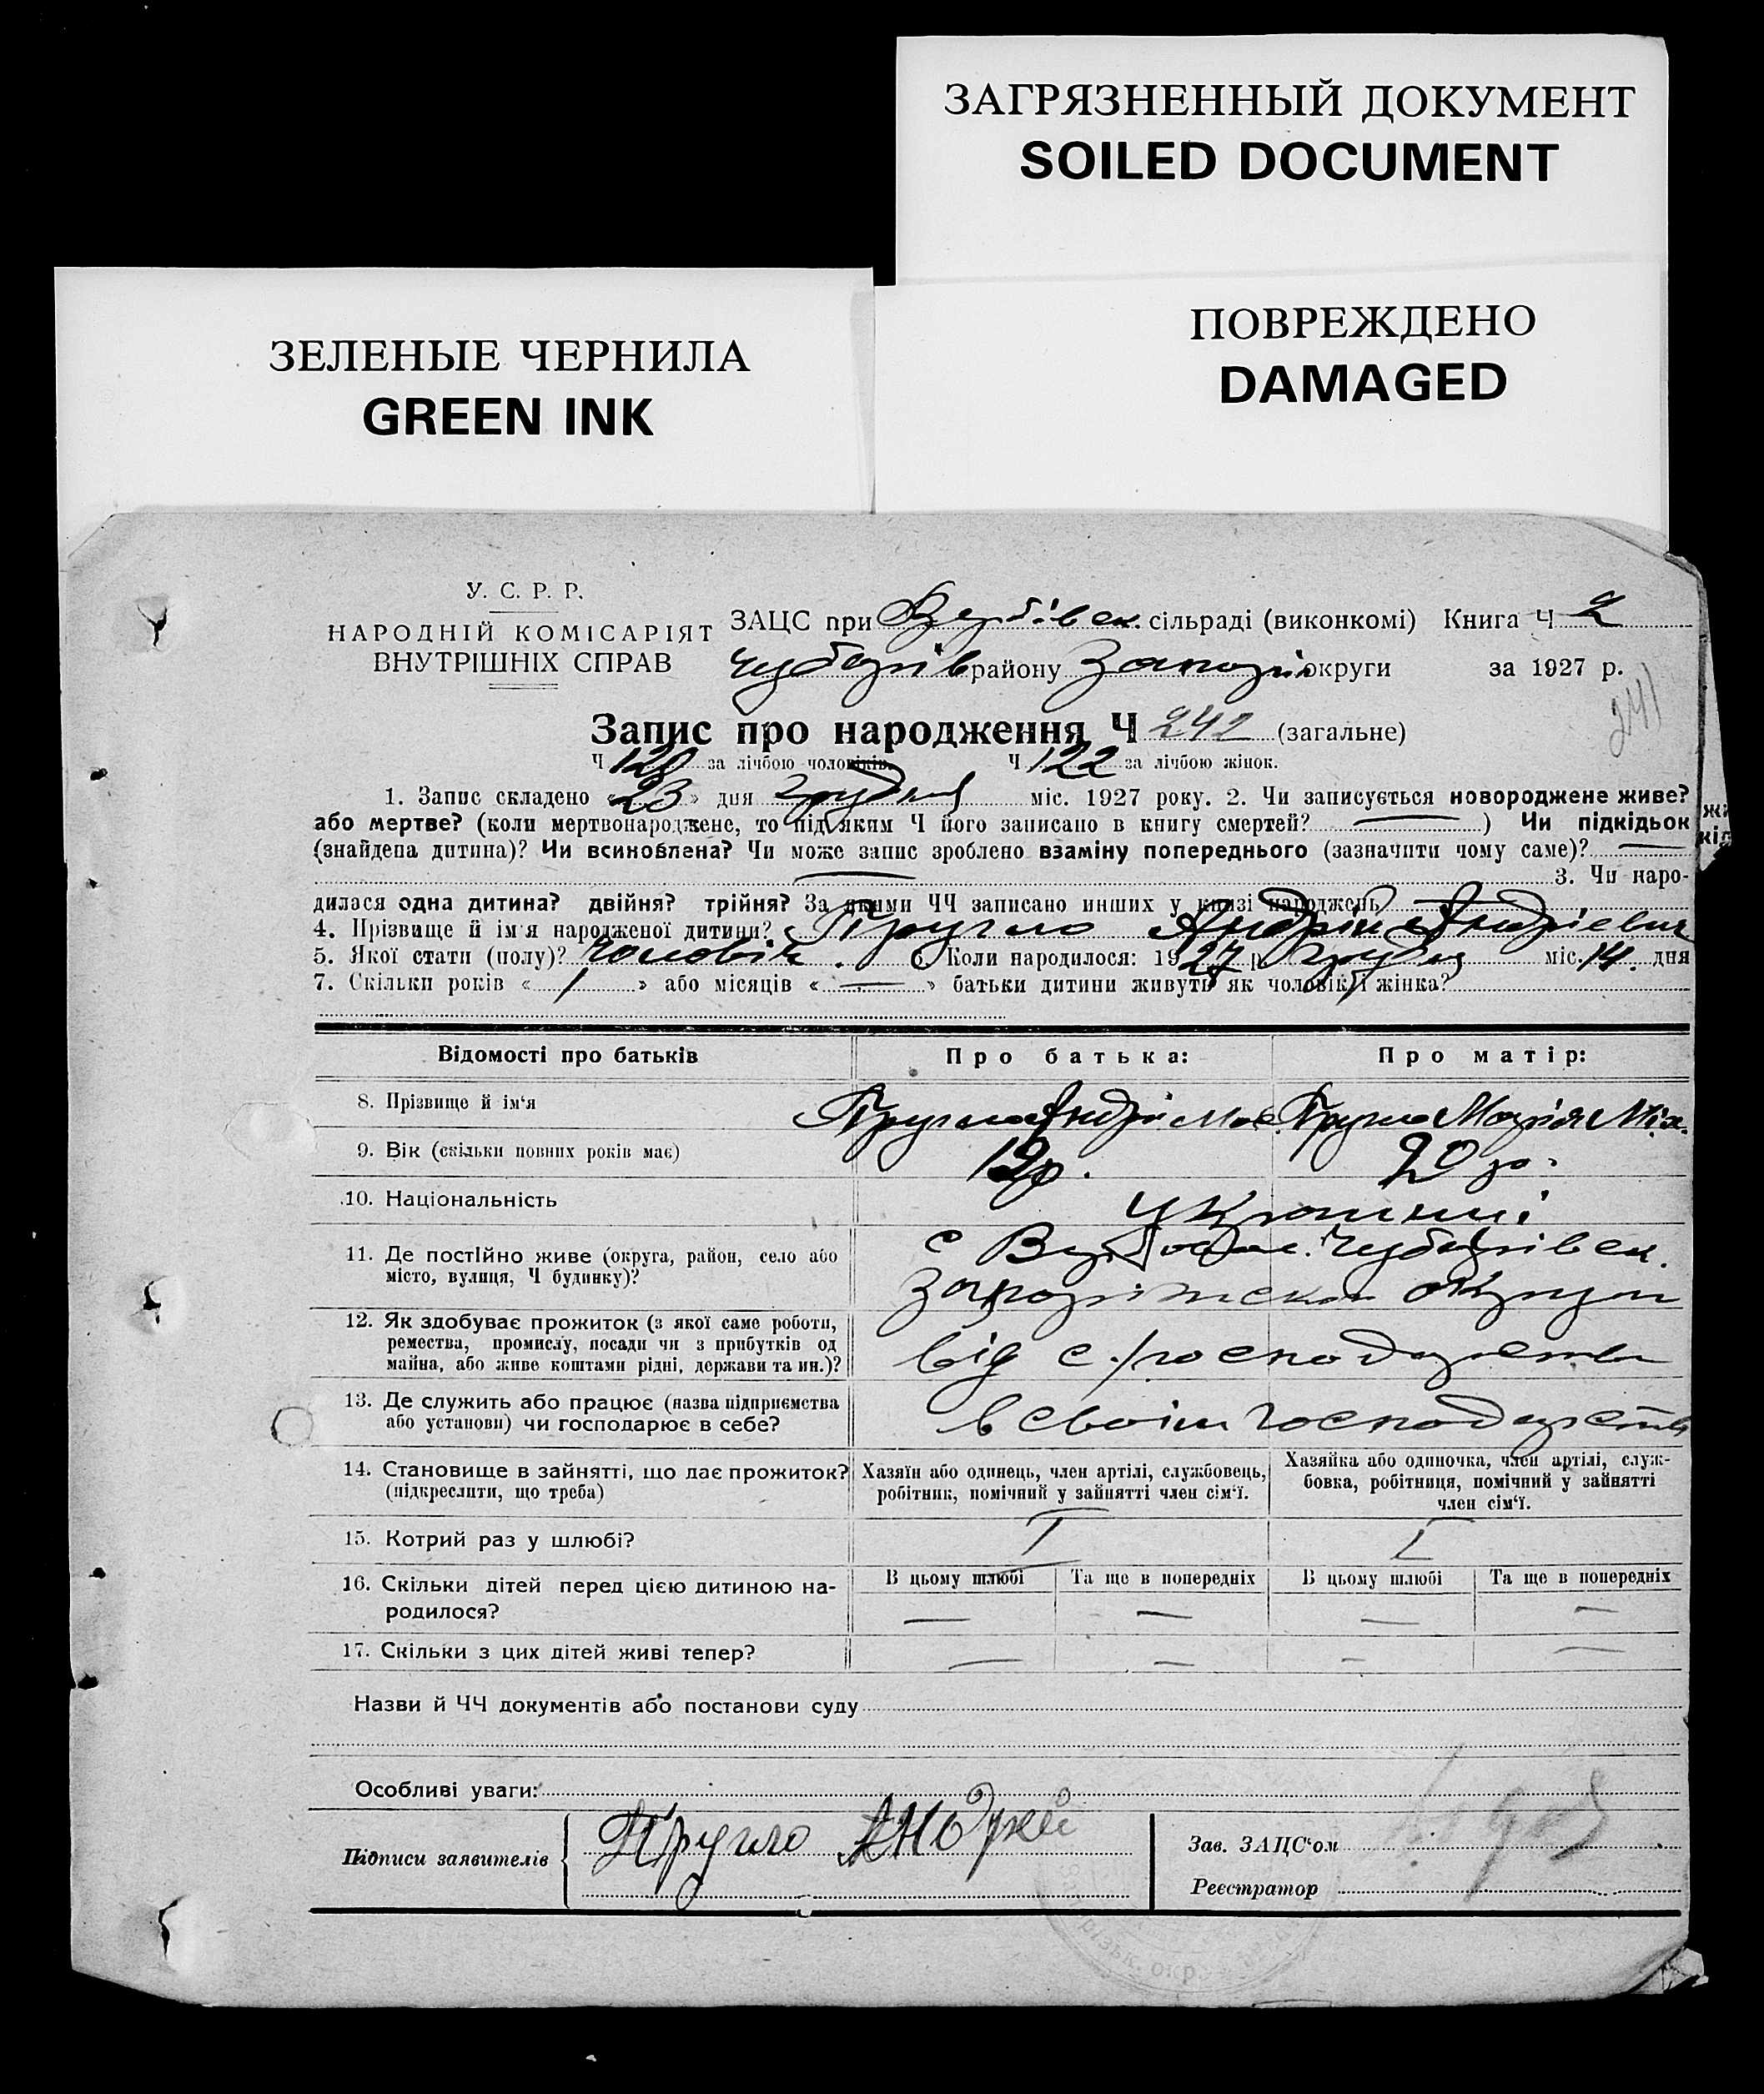 ЗАГРЯЗНЕННЫЙ ДОКУМЕНТ
SOILED DOCUMENT
ЗЕЛЕНЫЕ ЧЕРНИЛА
GREEN INK
ПОВРЕЖДЕНО
DAMAGED
У. С. Р. Р.
НАРОДНІЙ КОМІСАРІЯТ
ВНУТРІШНІХ СПРАВ
ЗАЦС при Вербівск. сільраді (виконкомі) Книга Ч 2
Чубарів району Запоріж округи за 1927 р.
241
Запис про народження Ч 242 (загальне)
Ч 120 за лічбою чоловіків. Ч 122 за лічбою жінок.
1. Запис складено «23» дня грудня міс. 1927 року. 2. Чи записується новороджене живе?
або мертве? (коли мертвонароджене, то під яким Ч його записано в книгу смертей? —) Чи підкідьок
(знайдена дитина)? Чи всиновлена? Чи може запис зроблено взаміну попереднього (зазначити чому саме)? —
— 3. Чи наро-
дилася одна дитина? двійня? трійня? За якими ЧЧ записано инших у книзі народжень
4. Прізвище й ім'я народженої дитини? Пругло Андрій Андрієвич
5. Якої стати (полу)? чоловік. 6. Коли народилося: 1927 р. грудня міс. 14. дня
7. Скільки років «1» або місяців «—» батьки дитини живуть як чоловік і жінка?
Відомості про батьків Про батька: Про матір:
8. Прізвище й ім'я Пругло Андрій Пругло Марія Мих.
9. Вік (скільки повних років має) 19р. 20 р.
10. Національність Українці
11. Де постійно живе (округа, район, село або
місто, вулиця, Ч будинку)?
с Вербове. Чубарівск.
Запоріжської округи
12. Як здобуває прожиток (з якої саме роботи,
ремества, промислу, посади чи з прибутків од
майна, або живе коштами рідні, держави та ин.)?
від с/господарства
13. Де служить або працює (назва підприємства
або установи) чи господарює в себе?
в своїм господарстві
14. Становище в зайнятті, що дає прожиток?
(підкреслити, що треба)
Хазяїн або одинець, член артілі, службовець,
робітник, помічний у зайнятті член сім'ї.
Хазяйка або одиночка, член артілі, служ-
бовка, робітниця, помічний у зайнятті
член сім'ї.
15. Котрий раз у шлюбі? I I
16. Скільки дітей перед цією дитиною на-
родилося?
В цьому шлюбі Та ще в попередніх В цьому шлюбі Та ще в попередніх
— — — —
17. Скільки з цих дітей живі тепер? — — — —
Назви й ЧЧ документів або постанови суду
Особливі уваги:
Підписи заявителів Пругло Андрей
Зав. ЗАЦС'ом
Реєстратор